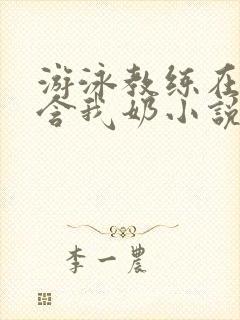 游泳教练在
含我奶小説
李一農